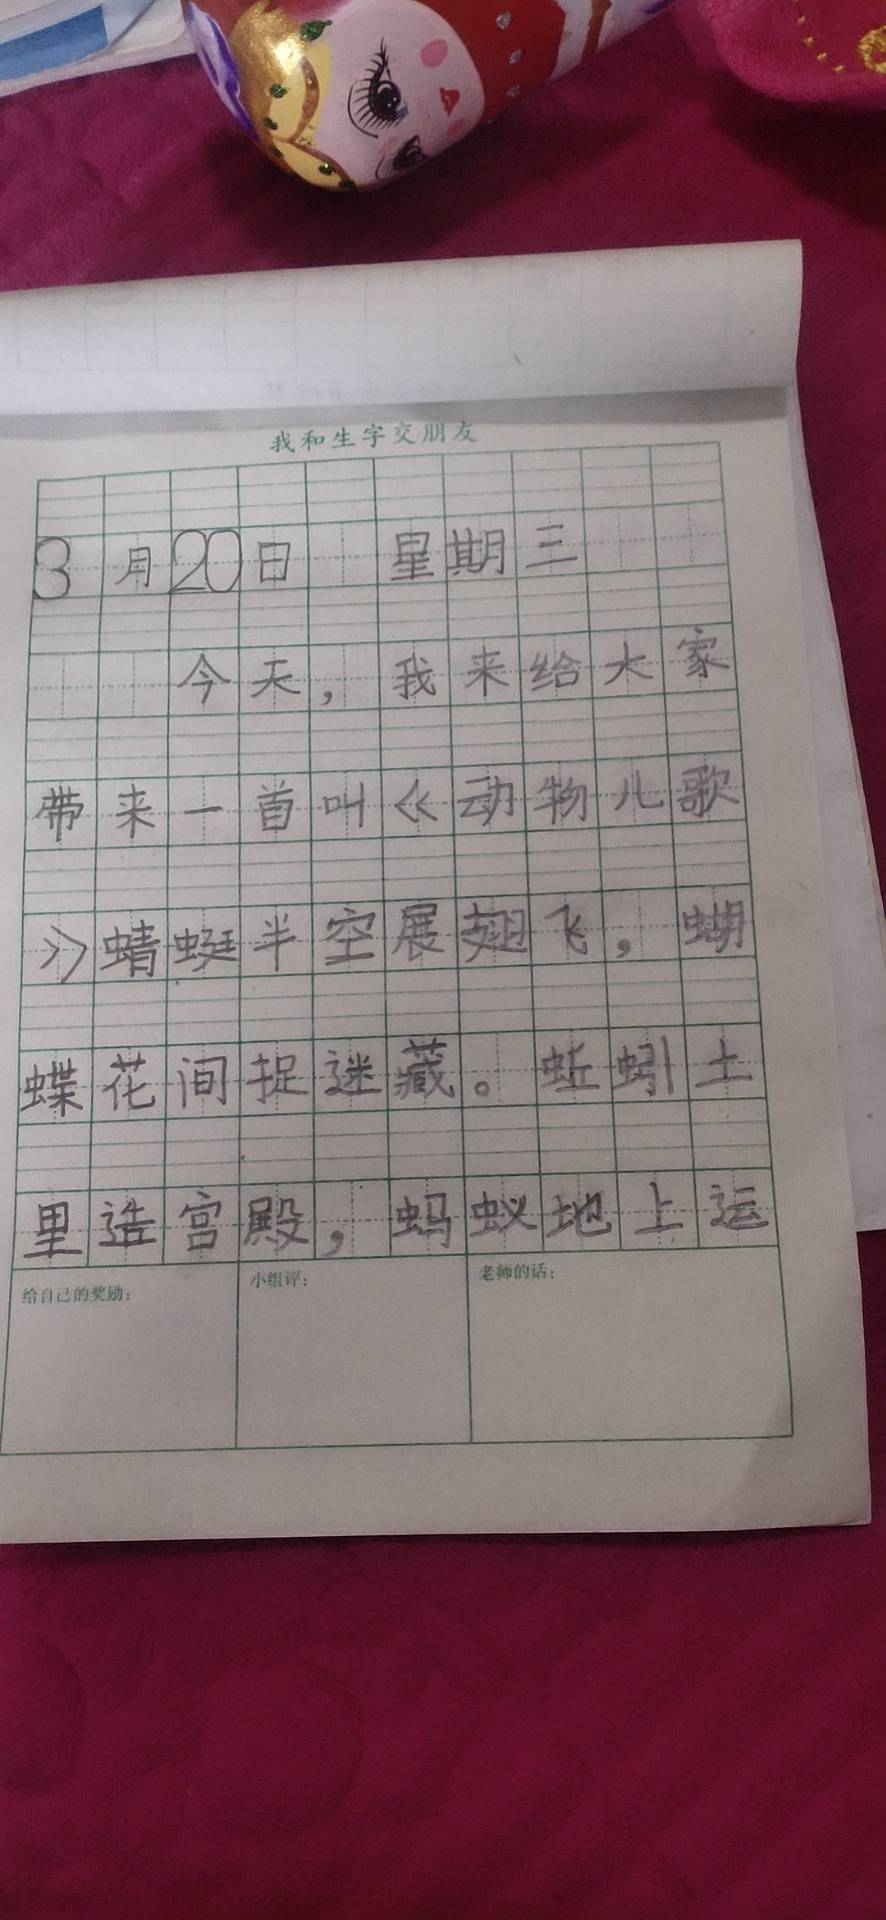 我和生字交朋友
3月20日 星期三
今天，我来给大家
带来一首叫《动物儿歌
》蜻蜓半空展翅飞，蝴
蝶花间捉迷藏。蚯蚓土
里造宫殿，蚂蚁地上运
给自己的奖励：
小组评：
老师的话：